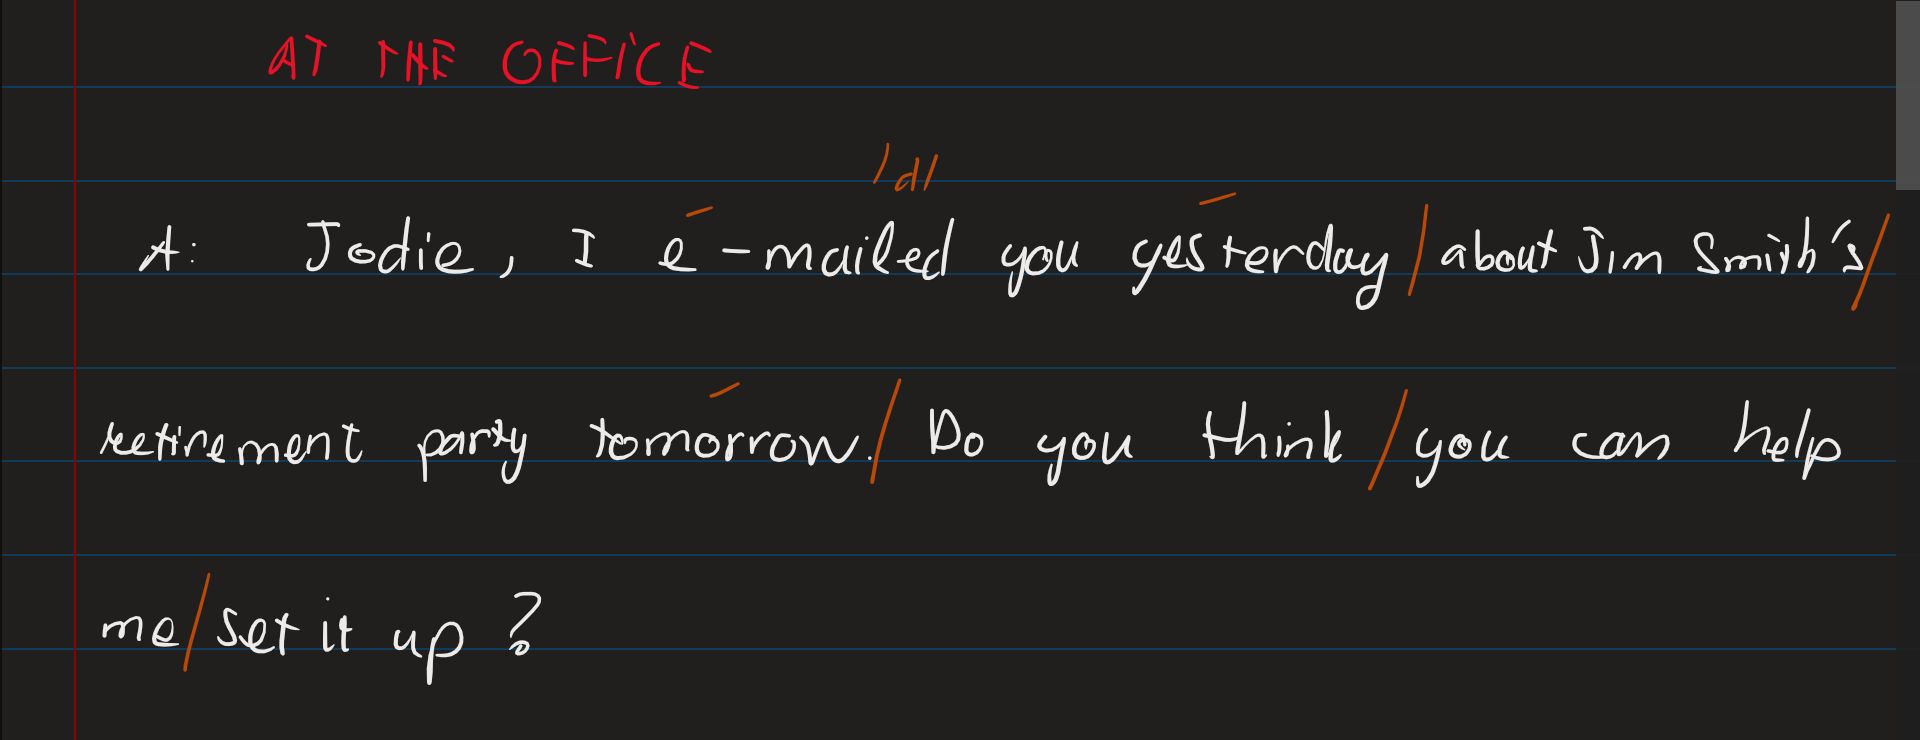 AT THE OFFICE
/d/
A: Jodie, I e-mailed you yesterday/about Jim Smith's/
retirement party tomorrow./Do you think/you can help
me/set it up?